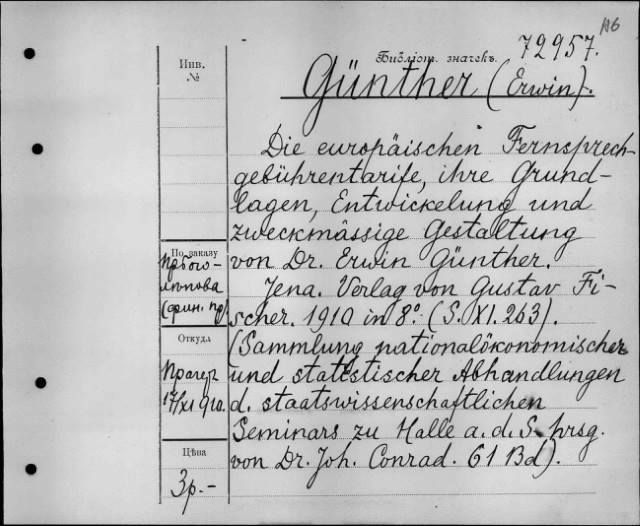 116
72957.
Библіот. значекъ.
Günther (Erwin).
Die europäischen Fernsprech-
gebührentarife, ihre Grund-
lagen, Entwickelung und
zweckmässige Gestaltung
von Dr. Erwin Günther.
Jena. Verlag von Gustav Fi-
scher. 1910 in 8º. (S. XI. 263).
(Sammlung nationalökonomischer
und statistischer Abhandlungen
d. staatswissenschaftlichen
Seminars zu Halle a. d. S. hrsg.
von Dr. Joh. Conrad. 61 Bd).
Инв.
№
По заказу
Пр. Бого-
лѣпова
Откуда
Прагеръ
17/XI 910.
Цѣна
3р.-